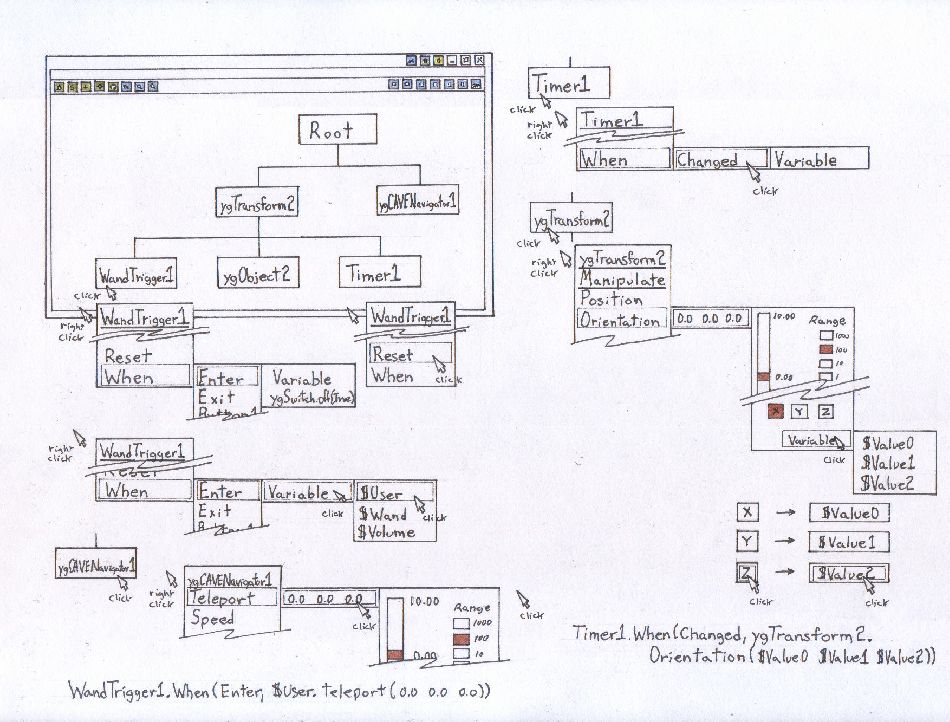 Root
ygTransform2
ygCAVENavigator1
WandTrigger1
ygObject2
Timer1
click
right click
WandTrigger1
Reset
When
Enter
Exit
Variable
ygSwitch.off(true)
WandTrigger1
Reset
When
click
right click
WandTrigger1
Reset
When
Enter
Exit
Variable
click
$User
$Wand
$Volume
click
ygCAVENavigator1
click
right click
ygCAVENavigator1
Teleport
Speed
0.0 0.0 0.0
click
10.00
0.00
Range
1000
100
10
click
WandTrigger1.When(Enter, $User.teleport(0.0 0.0 0.0))
Timer1
click
right click
Timer1
When
Changed
Variable
click
ygTransform2
click
right click
ygTransform2
Manipulate
Position
Orientation
0.0 0.0 0.0
10.00
0.00
Range
1000
100
10
1
X Y Z
Variable
click
$Value0
$Value1
$Value2
X → $Value0
Y → $Value1
Z → $Value2
click click
Timer1.When(Changed, ygTransform2.
Orientation($Value0 $Value1 $Value2))